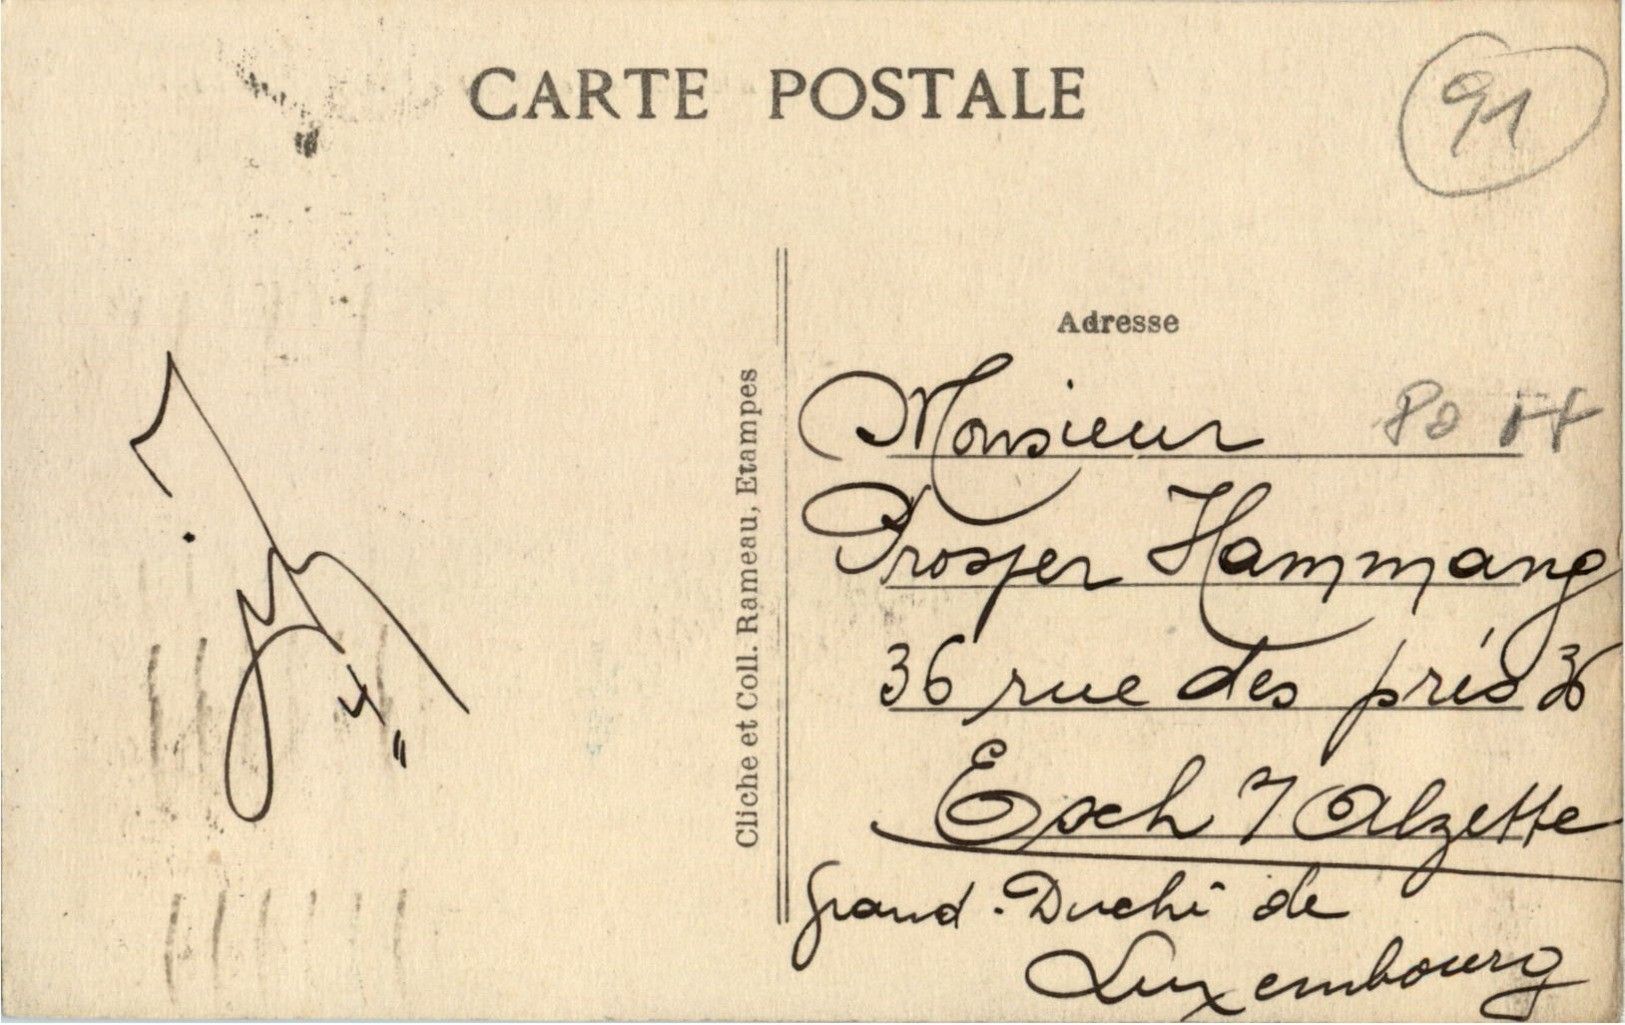 CARTE POSTALE
91
Cliche et Coll. Rameau, Etampes
Adresse
Monsieur
Prosper Hammang
36 rue des prés 36
Esch / Alzette
Grand-Duché de
Luxembourg